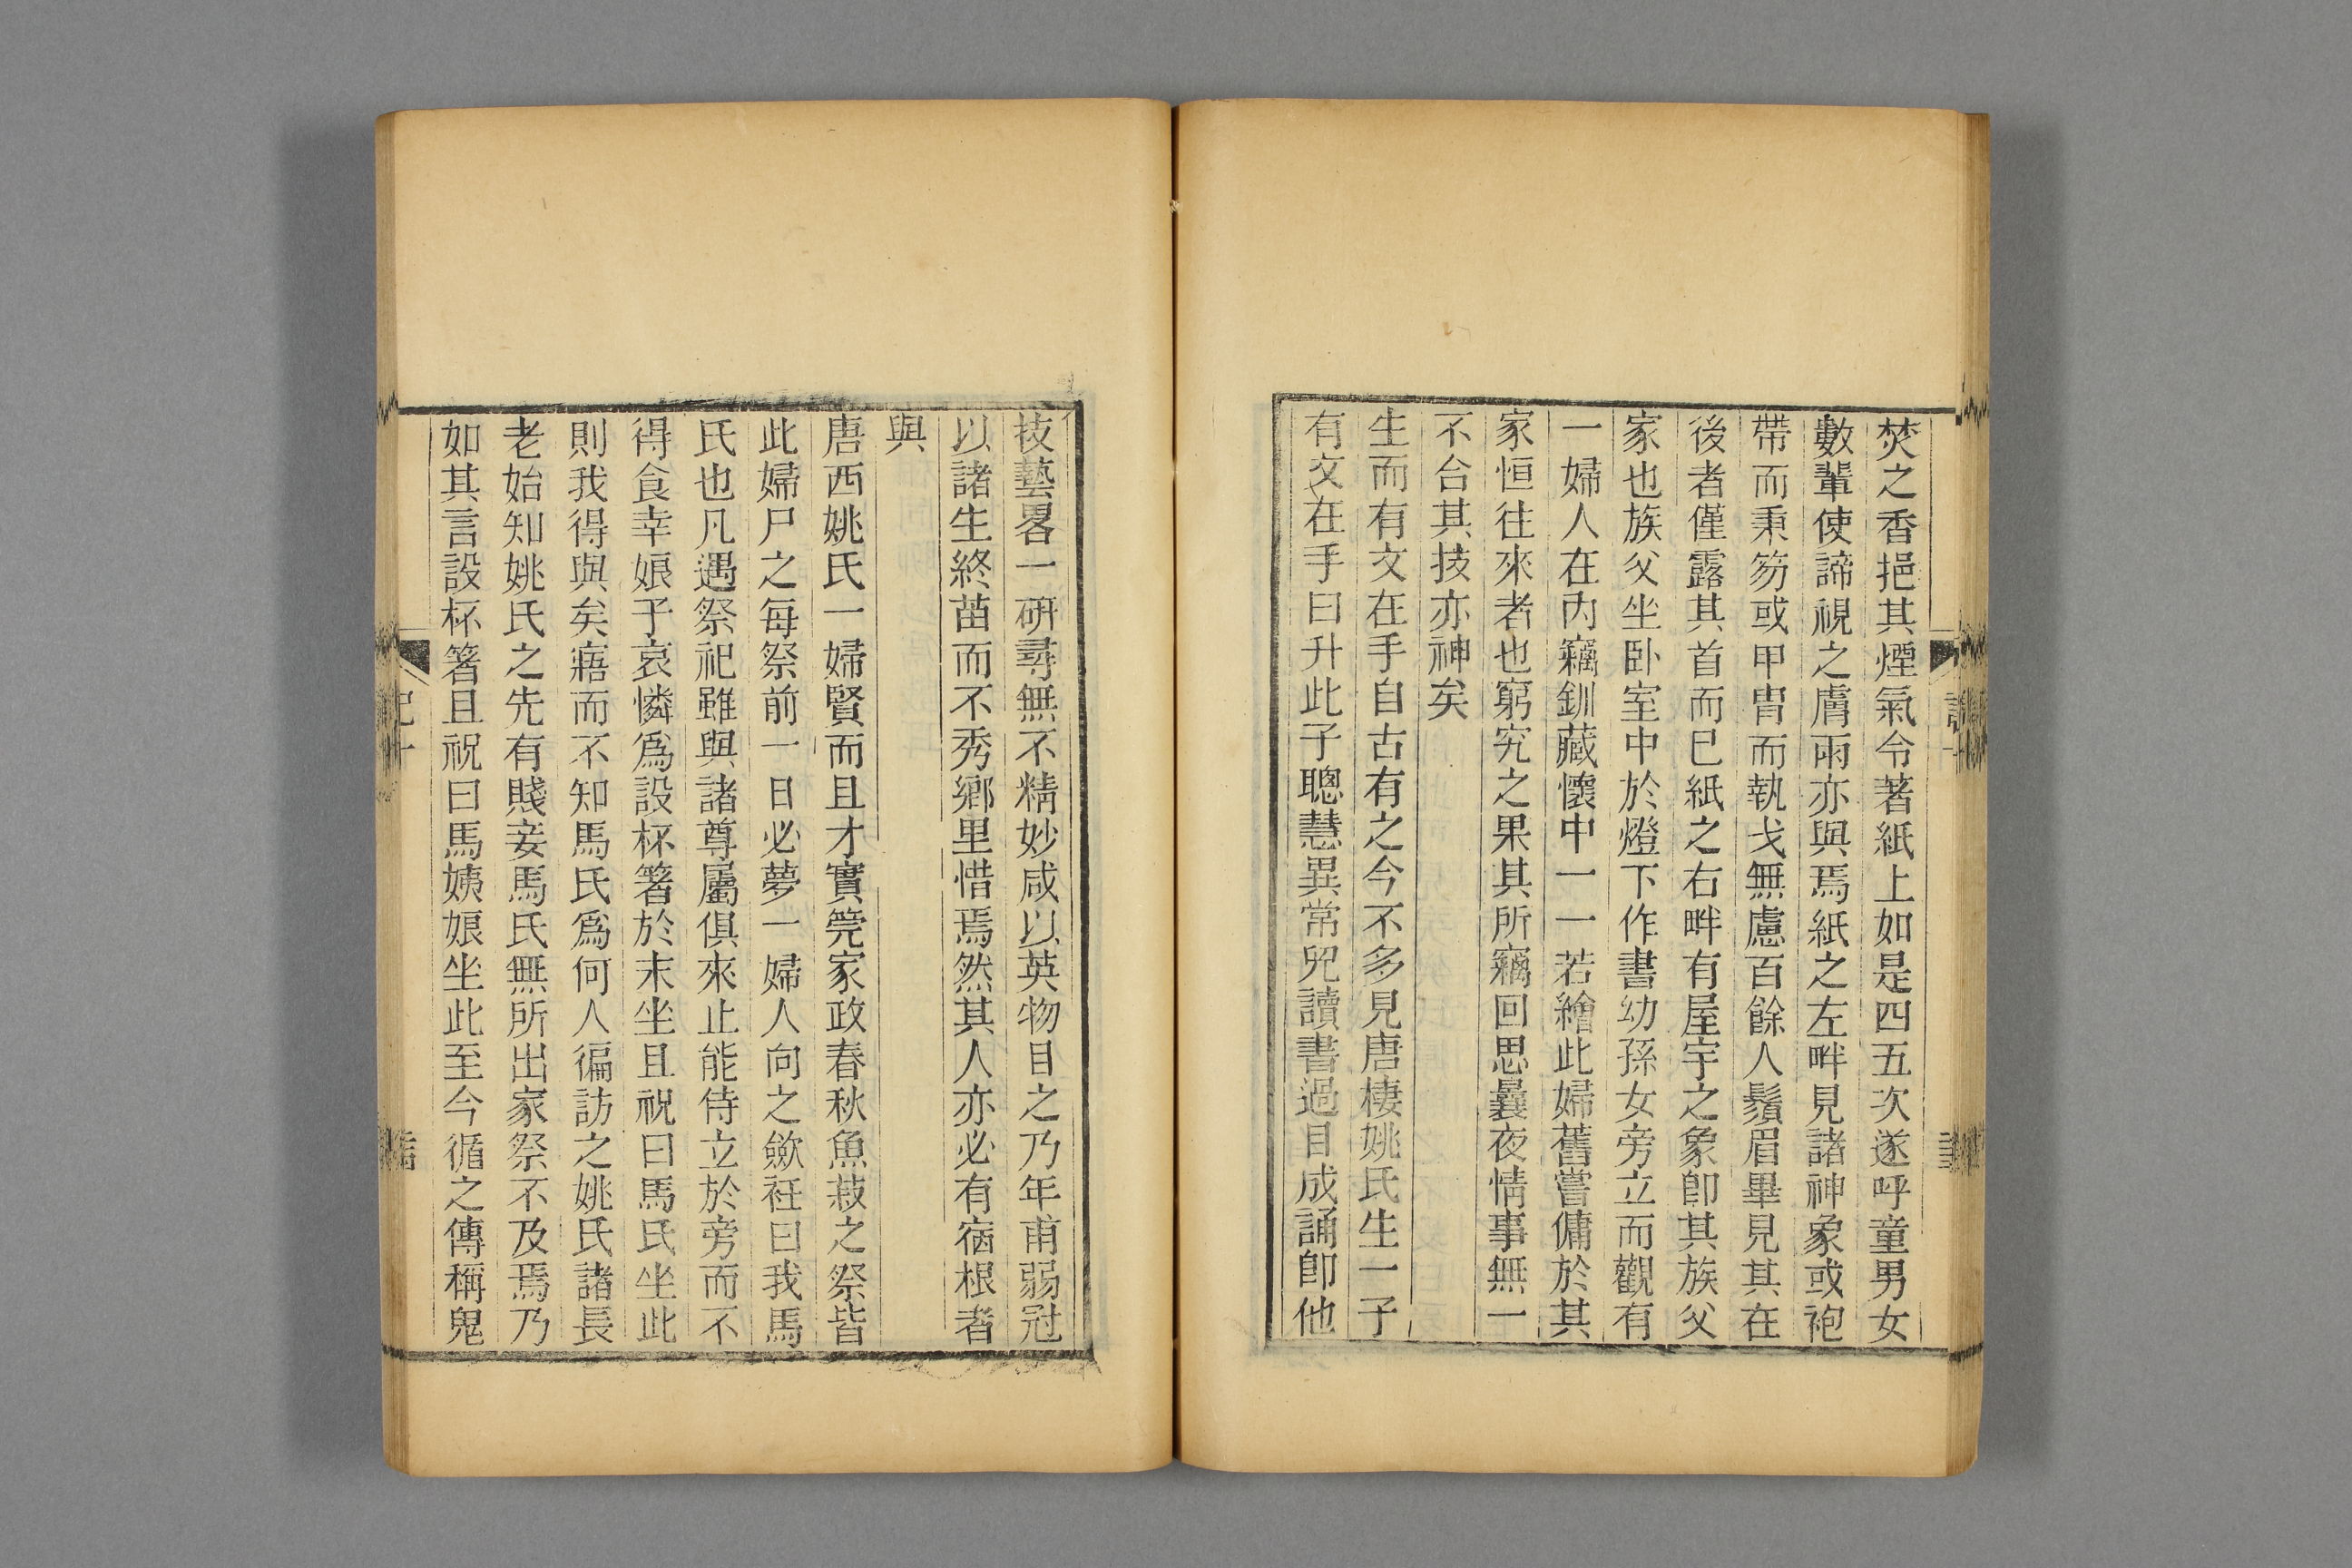 焚之香挹其煙氣令著紙上如是四五次遂呼童男女
數輩使諦視之膚雨亦與焉紙之左畔見諸神象或袍
帶而秉笏或甲冑而執戈無慮百餘人鬚眉畢見其在
後者僅露其首而已紙之右畔有屋宇之象卽其族父
家也族父坐卧室中於燈下作書幼孫女旁立而觀有
一婦人在內竊釧藏懷中一一若繪此婦舊嘗傭於其
家恒往來者也窮究之果其所竊回思曩夜情事無一
不合其技亦神矣
生而有文在手自古有之今不多見唐棲姚氏生一子
有文在手曰升此子聰慧異常兒讀書過目成誦卽他
技藝畧一硏尋無不精妙咸以英物目之乃年甫弱冠
以諸生終苗而不秀鄉里惜焉然其人亦必有宿根者
與
唐西姚氏一婦賢而且才實筦家政春秋魚菽之祭皆
此婦尸之每祭前一日必夢一婦人向之歛衽曰我馬
氏也凡遇祭祀雖與諸尊屬俱來止能侍立於旁而不
得食幸娘子哀憐爲設杯箸於末坐且祝曰馬氏坐此
則我得與矣寤而不知馬氏爲何人徧訪之姚氏諸長
老始知姚氏之先有賤妾馬氏無所出家祭不及焉乃
如其言設杯箸且祝曰馬姨娘坐此至今循之傳稱鬼